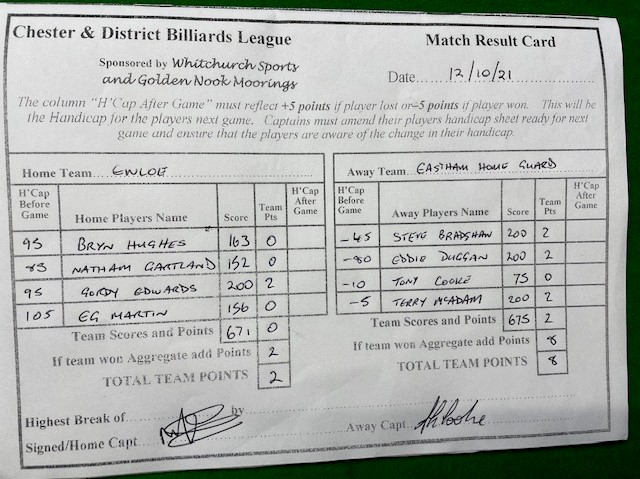 Chester & District Billiards League
Match Result Card
Sponsored by Whitchurch Sports
and Golden Nook Moorings
Date 12/10/21
The column "H'Cap After Game" must reflect +5 points if player lost or -5 points if player won. This will be
the Handicap for the players next game. Captains must amend their players handicap sheet ready for next
game and ensure that the players are aware of the change in their handicap.
Home Team EWLOE
H'Cap Before Game Home Players Name Score Team Pts H'Cap After Game
95 BRYN HUGHES 163 0
83 NATHAM GARTLAND 152 0
95 GORDY EDWARDS 200 2
105 EG MARTIN 156 0
Team Scores and Points 671 0
If team won Aggregate add Points 2
TOTAL TEAM POINTS 2
Away Team EASTHAM HOME GUARD
H'Cap Before Game Away Players Name Score Team Pts H'Cap After Game
-45 STEVE BRADSHAW 200 2
-80 EDDIE DUGGAN 200 2
-10 TONY COOKE 75 0
-5 TERRY McADAM 200 2
Team Scores and Points 675 2
If team won Aggregate add Points 8
TOTAL TEAM POINTS 8
Highest Break of by
Signed/Home Capt
Away Capt